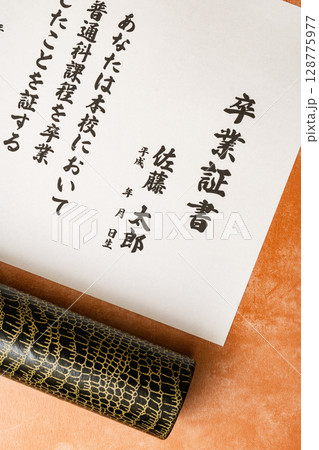 卒業証書
佐藤 太郎
平成 年 月 日生
あなたは本校において
普通科課程を卒業
したことを証する
年
128775977